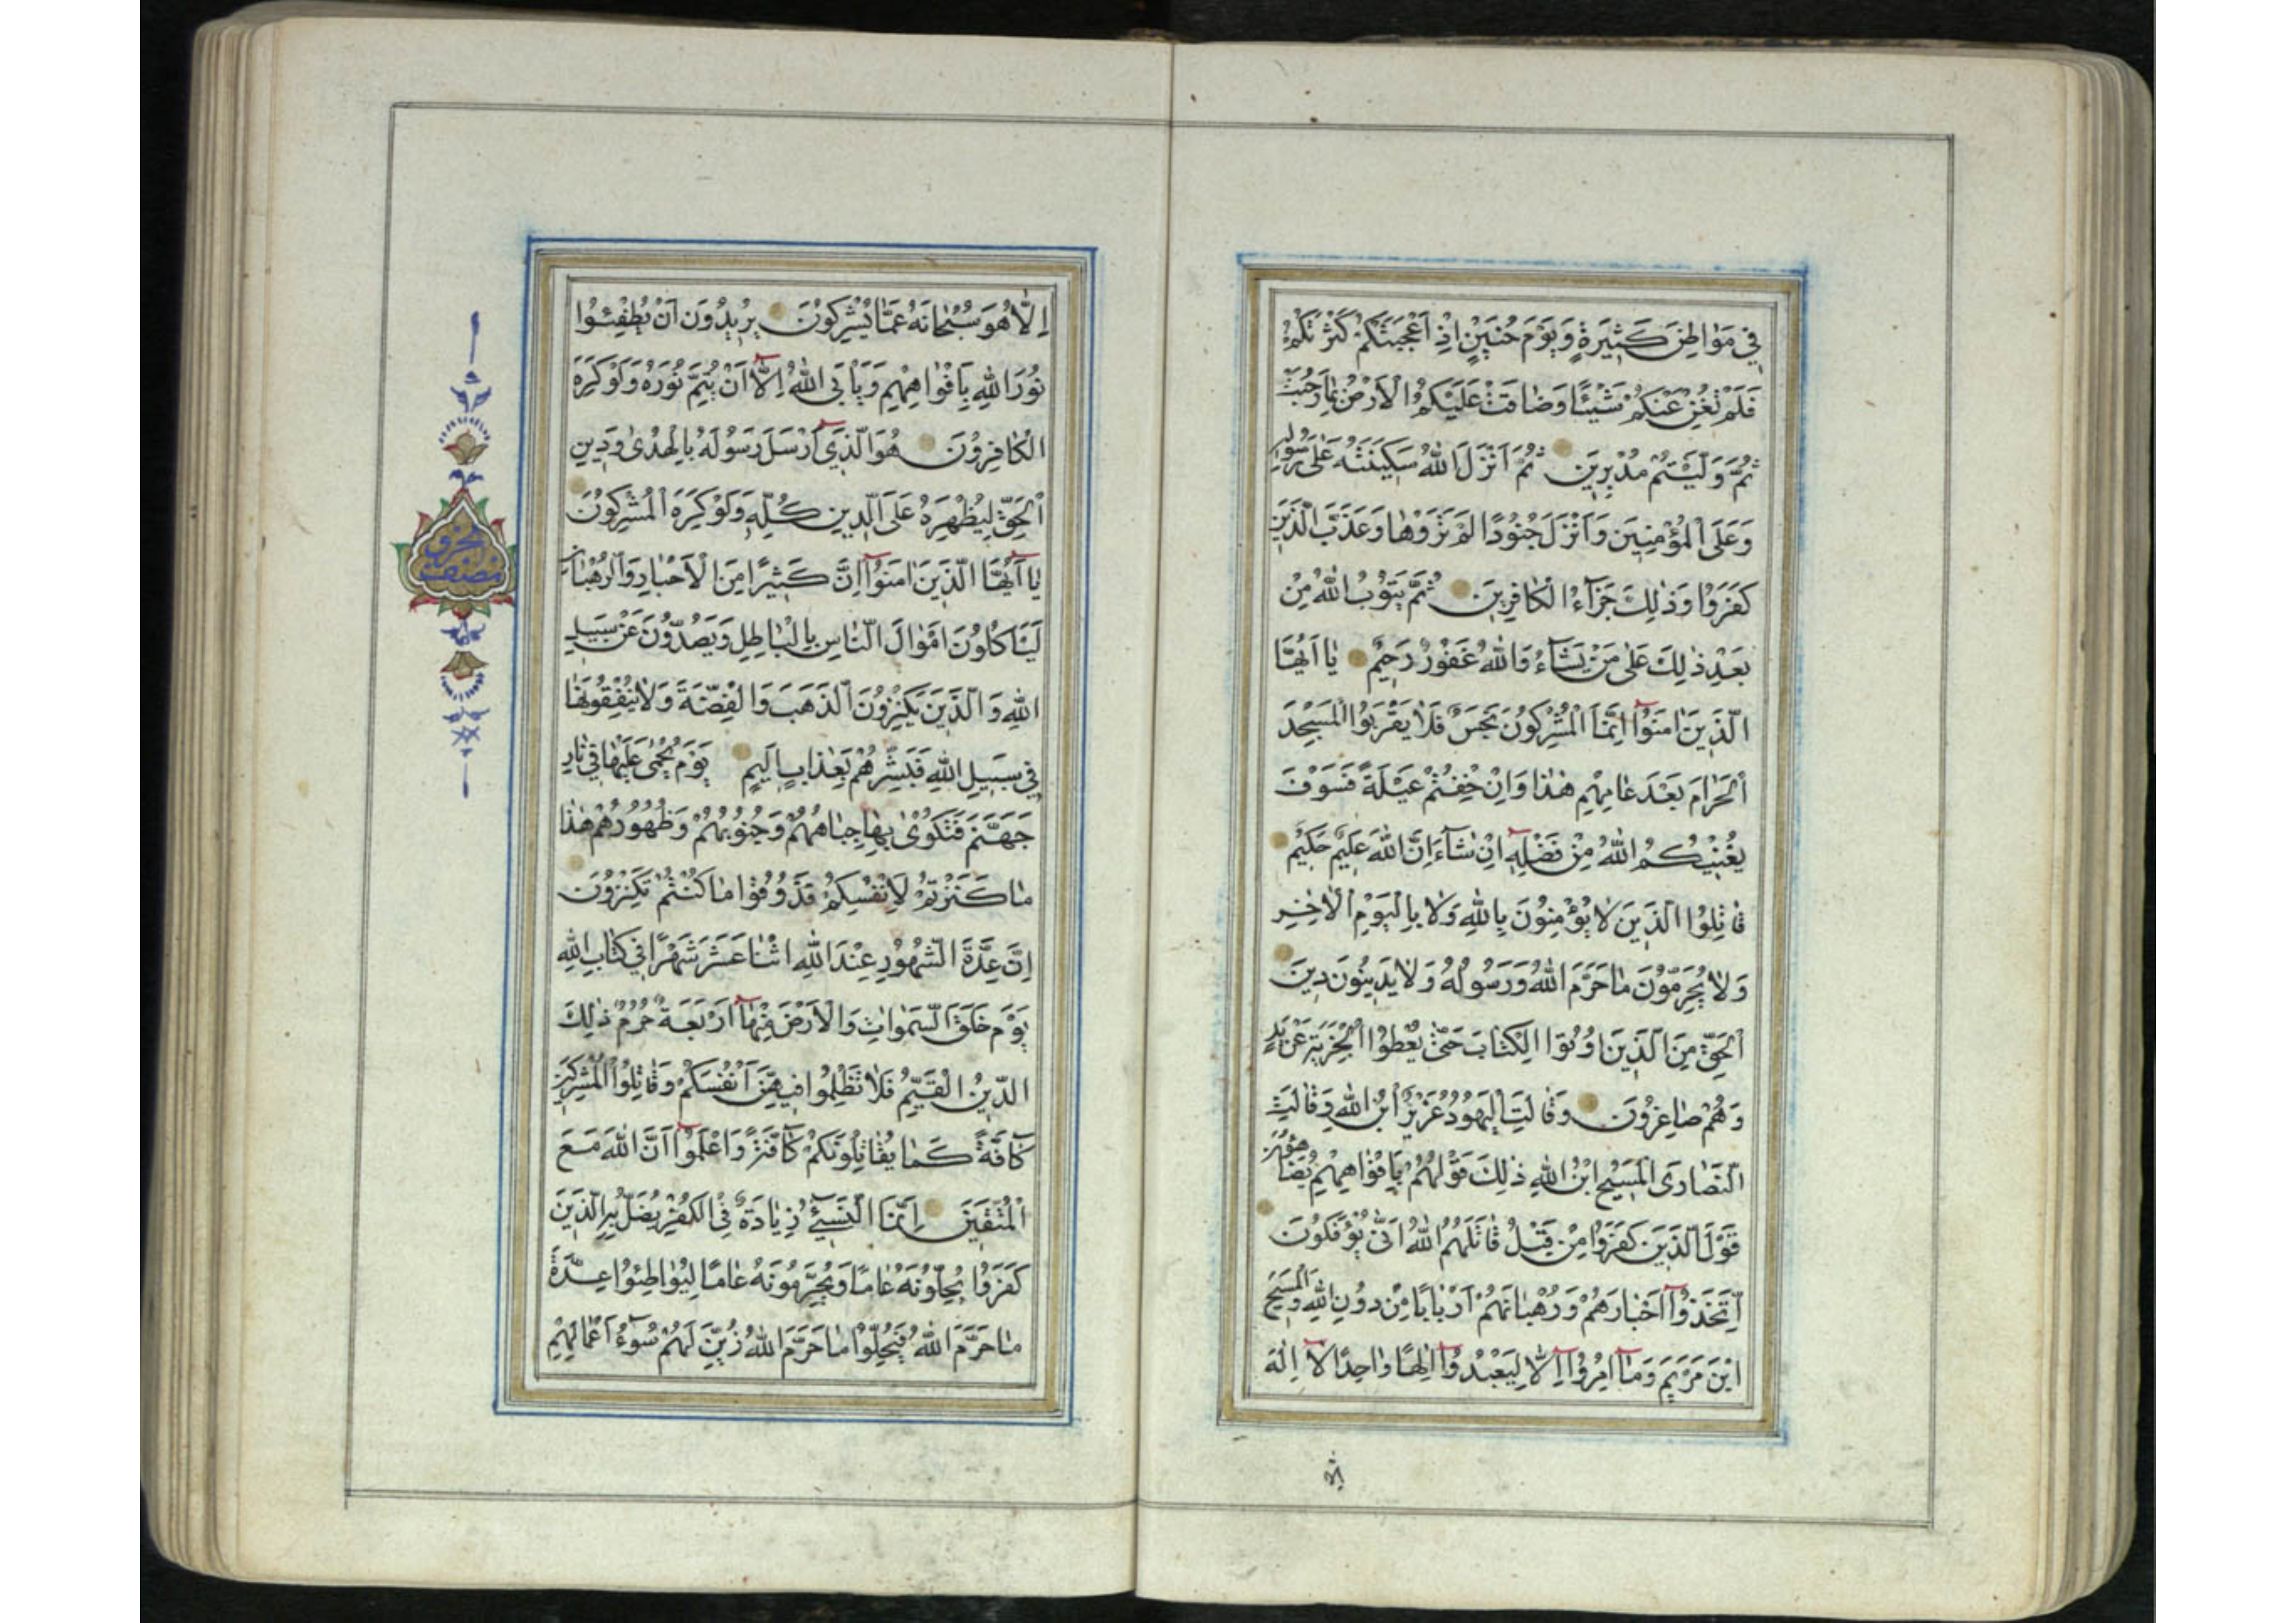 فِي مَوَاطِنَ كَثِيرَةٍ وَيَوْمَ حُنَيْنٍ اِذْ اَعْجَبَتْكُمْ كَثْرَتُكُمْ
فَلَمْ تُغْنِ عَنْكُمْ شَيْئًا وَضَاقَتْ عَلَيْكُمُ الْاَرْضُ بِمَا رَحُبَتْ
ثُمَّ وَلَّيْتُمْ مُدْبِرِينَ ثُمَّ اَنْزَلَ اللهُ سَكِينَتَهُ عَلَى رَسُولِهِ
وَعَلَى الْمُؤْمِنِينَ وَاَنْزَلَ جُنُودًا لَمْ تَرَوْهَا وَعَذَّبَ الَّذِينَ
كَفَرُوا وَذٰلِكَ جَزَآءُ الْكَافِرِينَ ثُمَّ يَتُوبُ اللهُ مِنْ
بَعْدِ ذٰلِكَ عَلَى مَنْ يَشَآءُ وَاللهُ غَفُورٌ رَحِيمٌ يَا اَيُّهَا
الَّذِينَ اٰمَنُوٓا اِنَّمَا الْمُشْرِكُونَ نَجَسٌ فَلَا يَقْرَبُوا الْمَسْجِدَ
الْحَرَامَ بَعْدَ عَامِهِمْ هٰذَا وَاِنْ خِفْتُمْ عَيْلَةً فَسَوْفَ
يُغْنِيكُمُ اللهُ مِنْ فَضْلِهِ اِنْ شَآءَ اِنَّ اللهَ عَلِيمٌ حَكِيمٌ
قَاتِلُوا الَّذِينَ لَا يُؤْمِنُونَ بِاللهِ وَلَا بِالْيَوْمِ الْاٰخِرِ
وَلَا يُحَرِّمُونَ مَا حَرَّمَ اللهُ وَرَسُولُهُ وَلَا يَدِينُونَ دِينَ
الْحَقِّ مِنَ الَّذِينَ اُوتُوا الْكِتَابَ حَتَّى يُعْطُوا الْجِزْيَةَ عَنْ يَدٍ
وَهُمْ صَاغِرُونَ وَقَالَتِ الْيَهُودُ عُزَيْرٌ ابْنُ اللهِ وَقَالَتِ
النَّصَارَى الْمَسِيحُ ابْنُ اللهِ ذٰلِكَ قَوْلُهُمْ بِاَفْوَاهِهِمْ يُضَاهِؤُنَ
قَوْلَ الَّذِينَ كَفَرُوا مِنْ قَبْلُ قَاتَلَهُمُ اللهُ اَنَّى يُؤْفَكُونَ
اِتَّخَذُوٓا اَحْبَارَهُمْ وَرُهْبَانَهُمْ اَرْبَابًا مِنْ دُونِ اللهِ وَالْمَسِيحَ
ابْنَ مَرْيَمَ وَمَآ اُمِرُوٓا اِلَّا لِيَعْبُدُوٓا اِلٰهًا وَاحِدًا لَآ اِلٰهَ
اِلَّا
اِلَّا هُوَ سُبْحَانَهُ عَمَّا يُشْرِكُونَ يُرِيدُونَ اَنْ يُطْفِئُوا
نُورَ اللهِ بِاَفْوَاهِهِمْ وَيَاْبَى اللهُ اِلَّآ اَنْ يُتِمَّ نُورَهُ وَلَوْ كَرِهَ
الْكَافِرُونَ هُوَ الَّذِيٓ اَرْسَلَ رَسُولَهُ بِالْهُدٰى وَدِينِ
الْحَقِّ لِيُظْهِرَهُ عَلَى الدِّينِ كُلِّهِ وَلَوْ كَرِهَ الْمُشْرِكُونَ
يَآ اَيُّهَا الَّذِينَ اٰمَنُوٓا اِنَّ كَثِيرًا مِنَ الْاَحْبَارِ وَالرُّهْبَانِ
لَيَاْكُلُونَ اَمْوَالَ النَّاسِ بِالْبَاطِلِ وَيَصُدُّونَ عَنْ سَبِيلِ
اللهِ وَالَّذِينَ يَكْنِزُونَ الذَّهَبَ وَالْفِضَّةَ وَلَا يُنْفِقُونَهَا
فِي سَبِيلِ اللهِ فَبَشِّرْهُمْ بِعَذَابٍ اَلِيمٍ يَوْمَ يُحْمٰى عَلَيْهَا فِي نَارِ
جَهَنَّمَ فَتُكْوٰى بِهَا جِبَاهُهُمْ وَجُنُوبُهُمْ وَظُهُورُهُمْ هٰذَا
مَا كَنَزْتُمْ لِاَنْفُسِكُمْ فَذُوقُوا مَا كُنْتُمْ تَكْنِزُونَ
اِنَّ عِدَّةَ الشُّهُورِ عِنْدَ اللهِ اثْنَا عَشَرَ شَهْرًا فِي كِتَابِ اللهِ
يَوْمَ خَلَقَ السَّمٰوَاتِ وَالْاَرْضَ مِنْهَآ اَرْبَعَةٌ حُرُمٌ ذٰلِكَ
الدِّينُ الْقَيِّمُ فَلَا تَظْلِمُوا فِيهِنَّ اَنْفُسَكُمْ وَقَاتِلُوا الْمُشْرِكِينَ
كَآفَّةً كَمَا يُقَاتِلُونَكُمْ كَآفَّةً وَاعْلَمُوٓا اَنَّ اللهَ مَعَ
الْمُتَّقِينَ اِنَّمَا النَّسِيٓءُ زِيَادَةٌ فِي الْكُفْرِ يُضَلُّ بِهِ الَّذِينَ
كَفَرُوا يُحِلُّونَهُ عَامًا وَيُحَرِّمُونَهُ عَامًا لِيُوَاطِئُوا عِدَّةَ
مَا حَرَّمَ اللهُ فَيُحِلُّوا مَا حَرَّمَ اللهُ زُيِّنَ لَهُمْ سُوٓءُ اَعْمَالِهِمْ